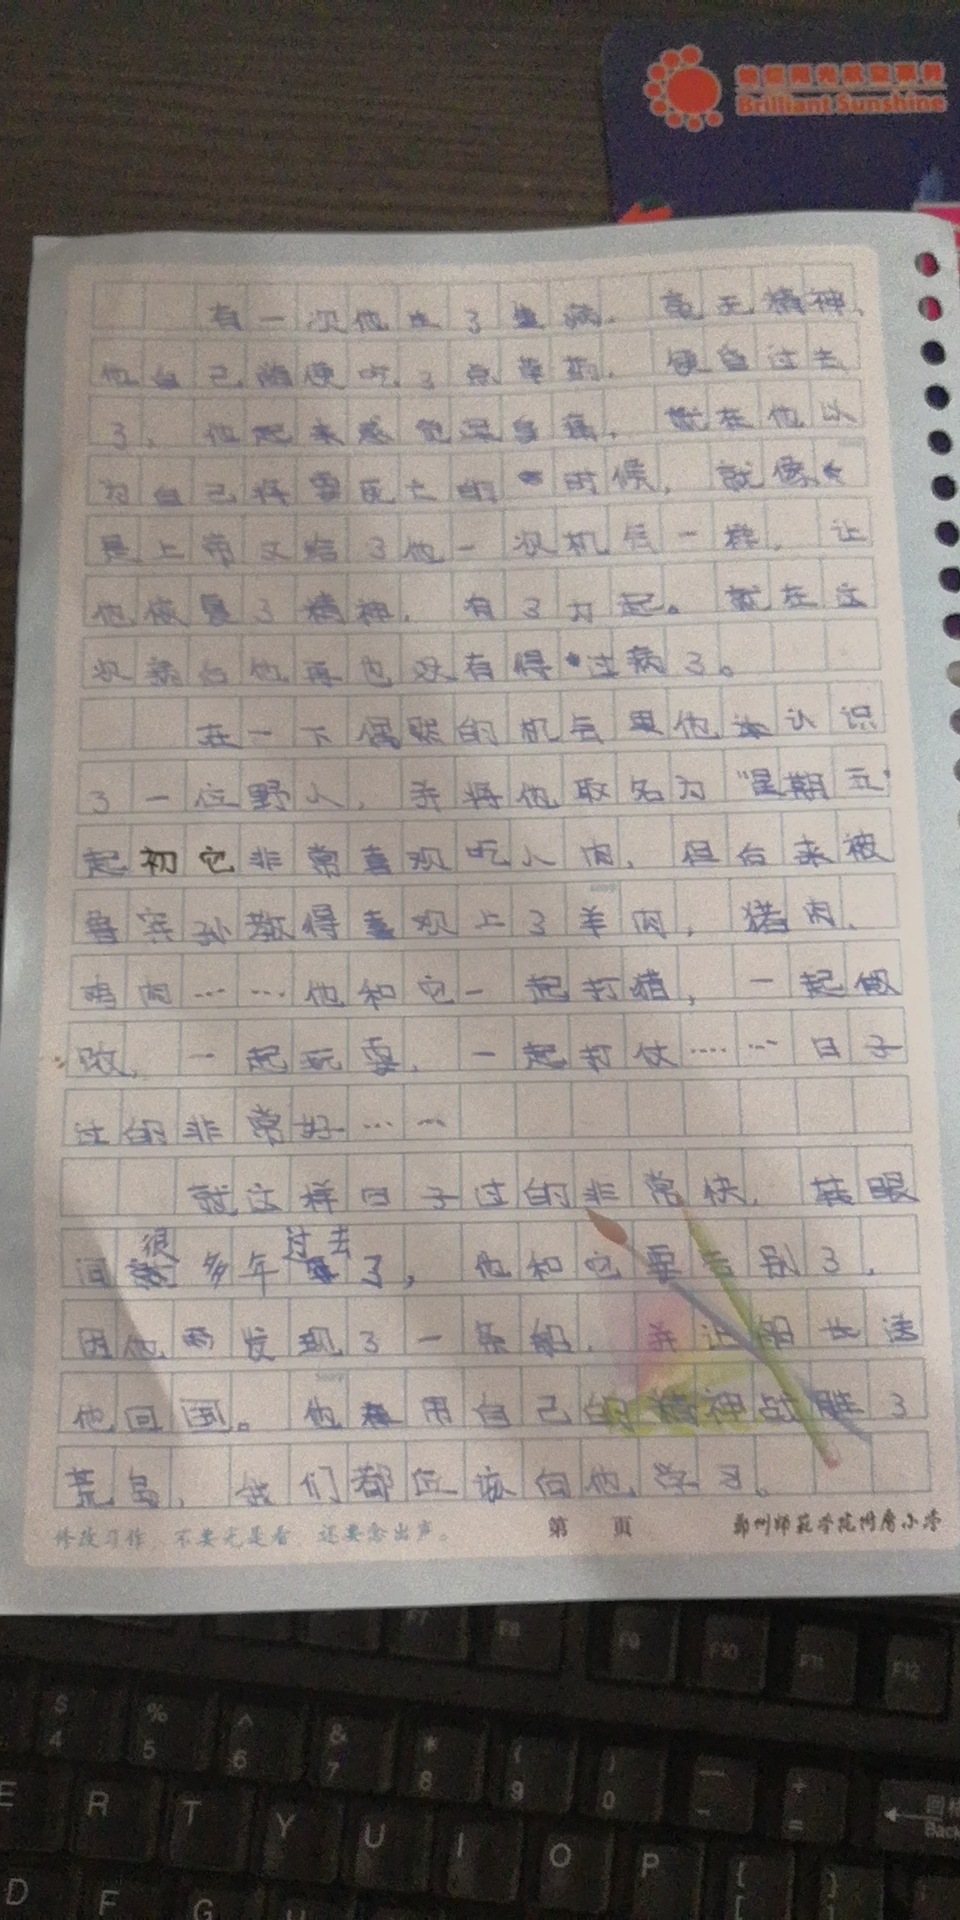 Brilliant Sunshine
有一次他生了重病,毫无精神,
他自己随便吃了点草药,便昏过去
了,他起来感觉浑身痛,就在他以
为自己将要死亡的时候,就像
是上帝又给了他一次机会一样,让
他恢复了精神,有了力起。就在这
次病后他再也没有得过病了。
在一下偶然的机会里他认识
了一位野人,并将他取名为“星期五”
起初它非常喜欢吃人肉,但后来被
鲁宾孙教得喜欢上了羊肉,猪肉、
鸡肉……他和它一起打猎,一起做
饭,一起玩耍,一起打仗……日子
过的非常好……
就这样日子过的非常快,转眼
间很多年过去了,他和它要告别了,
因他两发现了一条船,并让船长送
他回国。他用自己的精神战胜了
荒岛,我们都应该向他学习。
修改习作,不要光是看,还要念出声。 第 页 郑州师范学院附属小学
F7 F8 F9 F10 F11 F12
$ % ^ & * ( ) — +
4 5 6 7 8 9 0 - =
E R T Y U I O P [ ]
D F G
Back